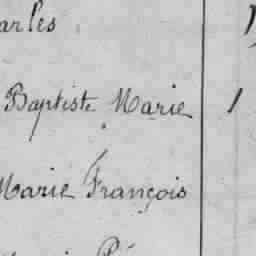 arles
Baptiste Marie 1
Marie François